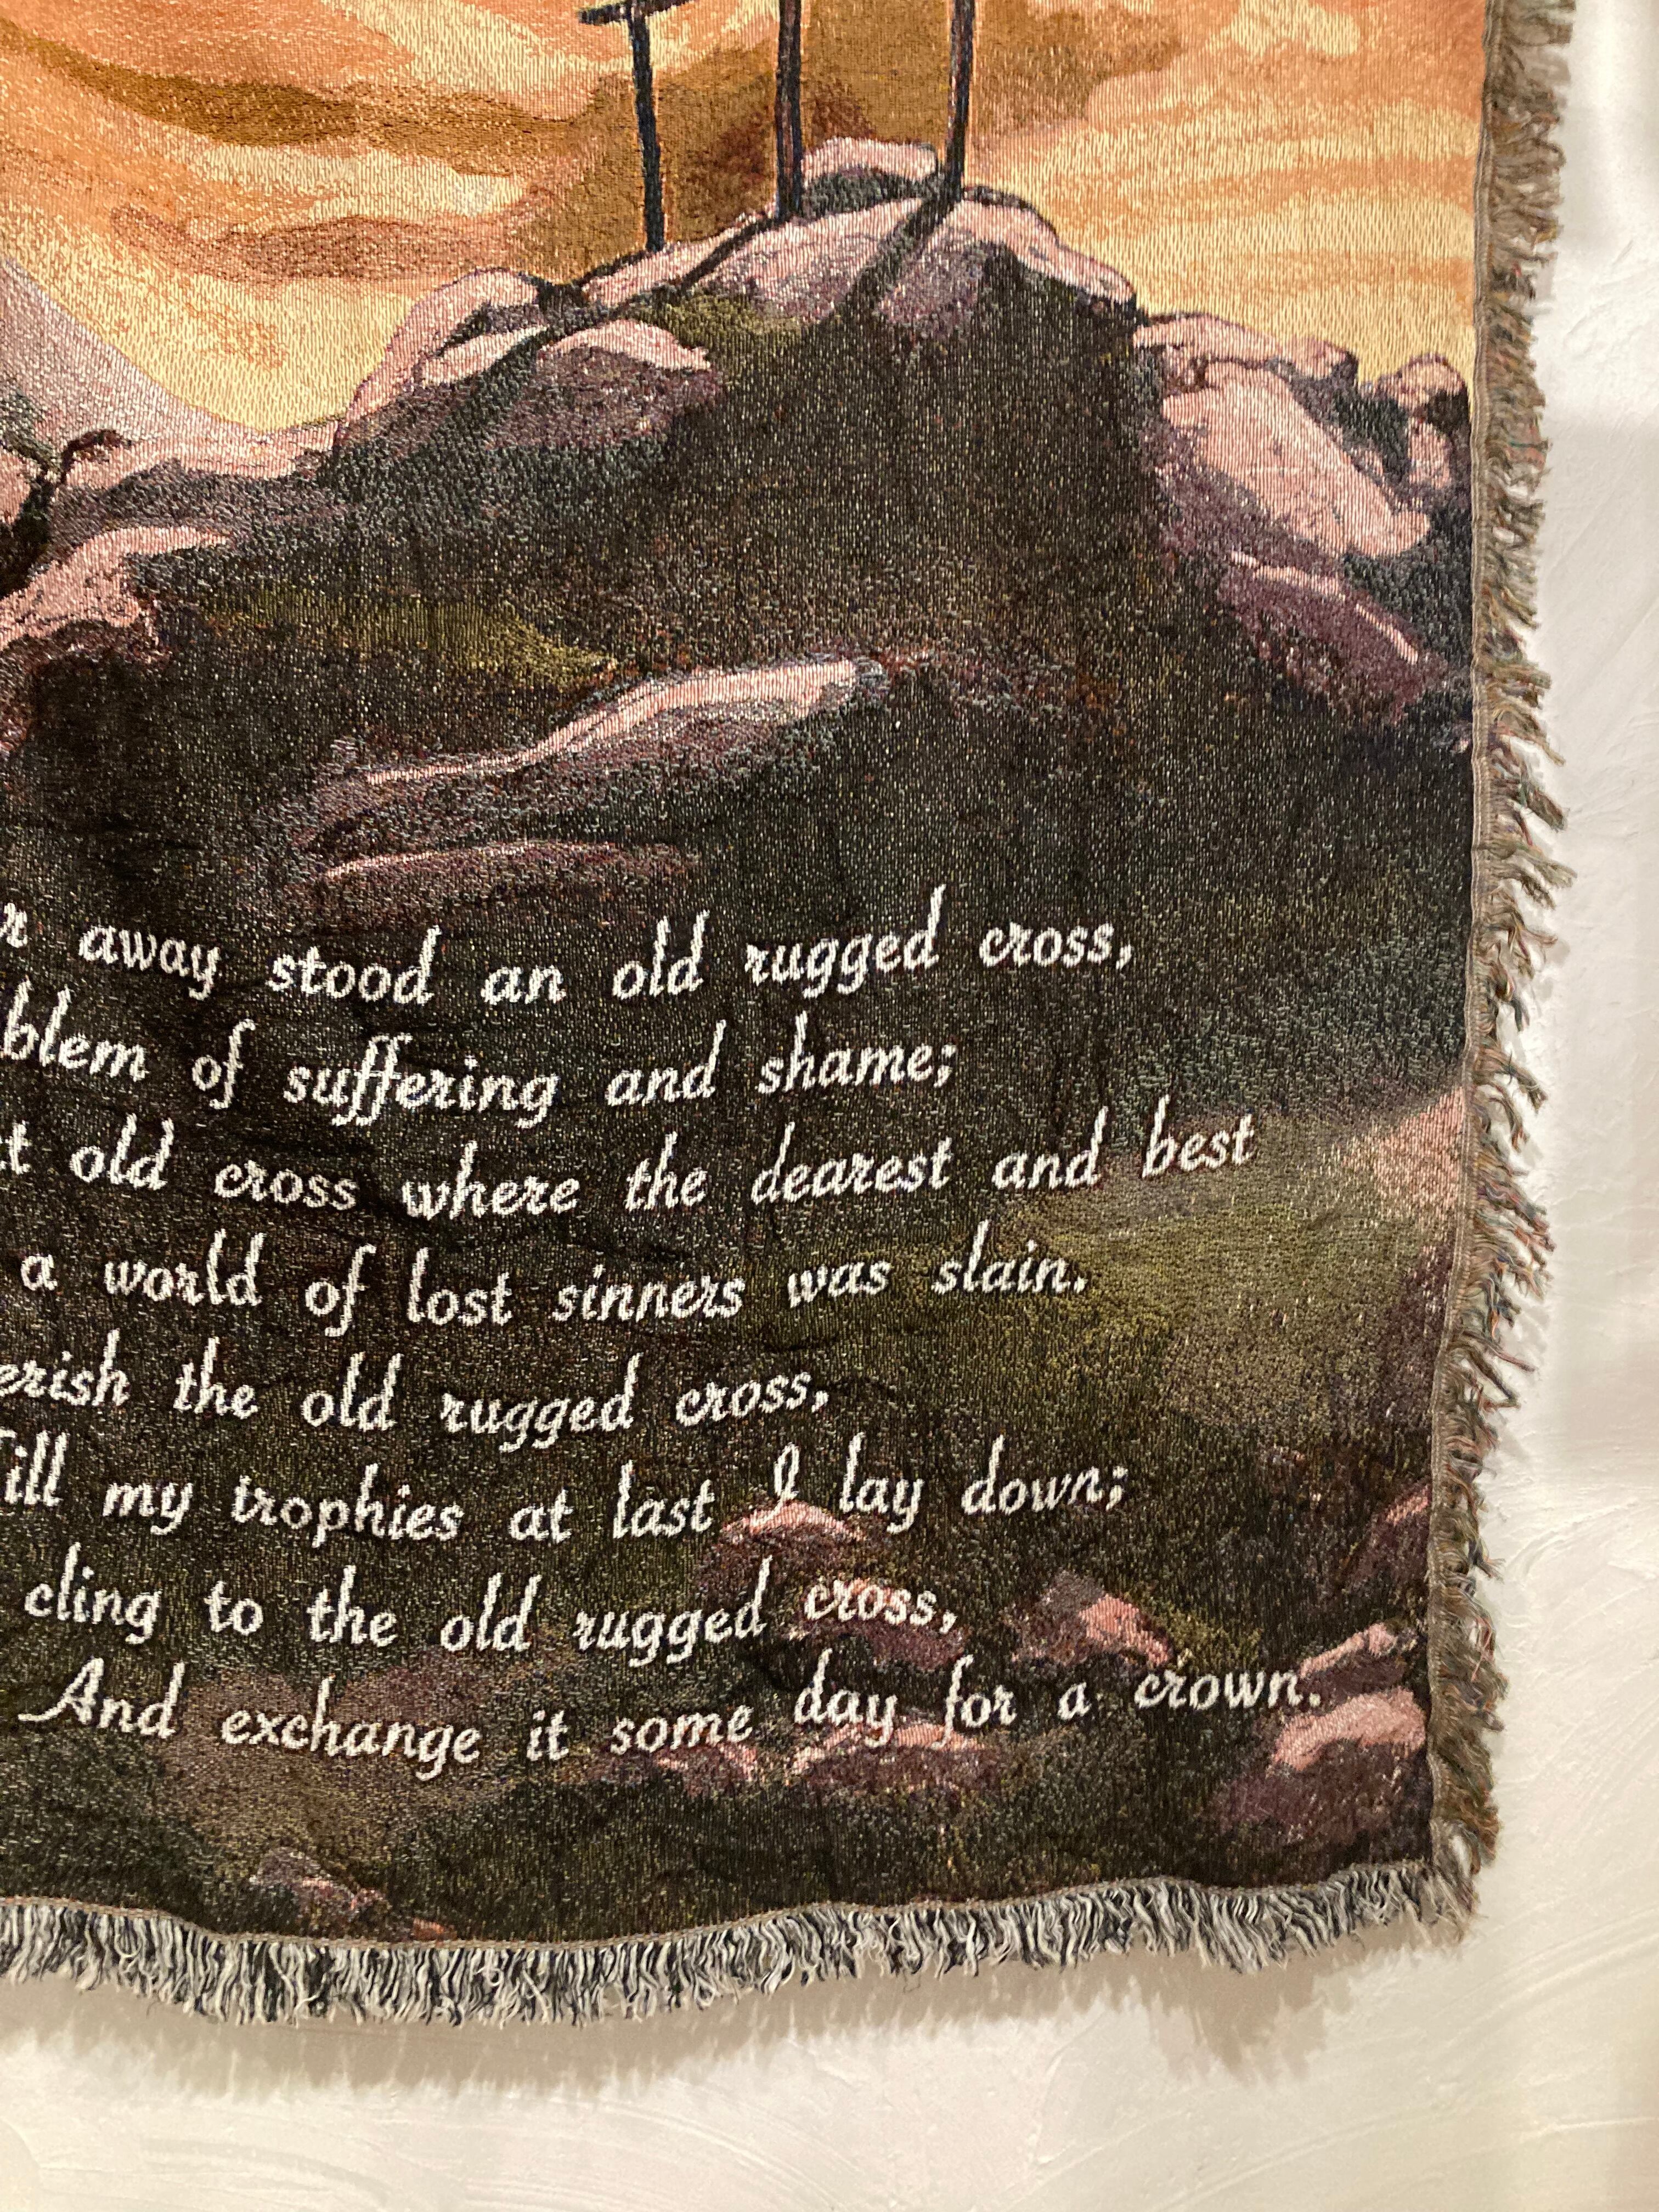 away stood an old rugged cross,
of suffering and shame;
old cross where the dearest and best
a world of lost sinners was slain.
the old rugged cross,
my trophies at last I lay down;
cling to the old rugged cross,
And exchange it some day for a crown.